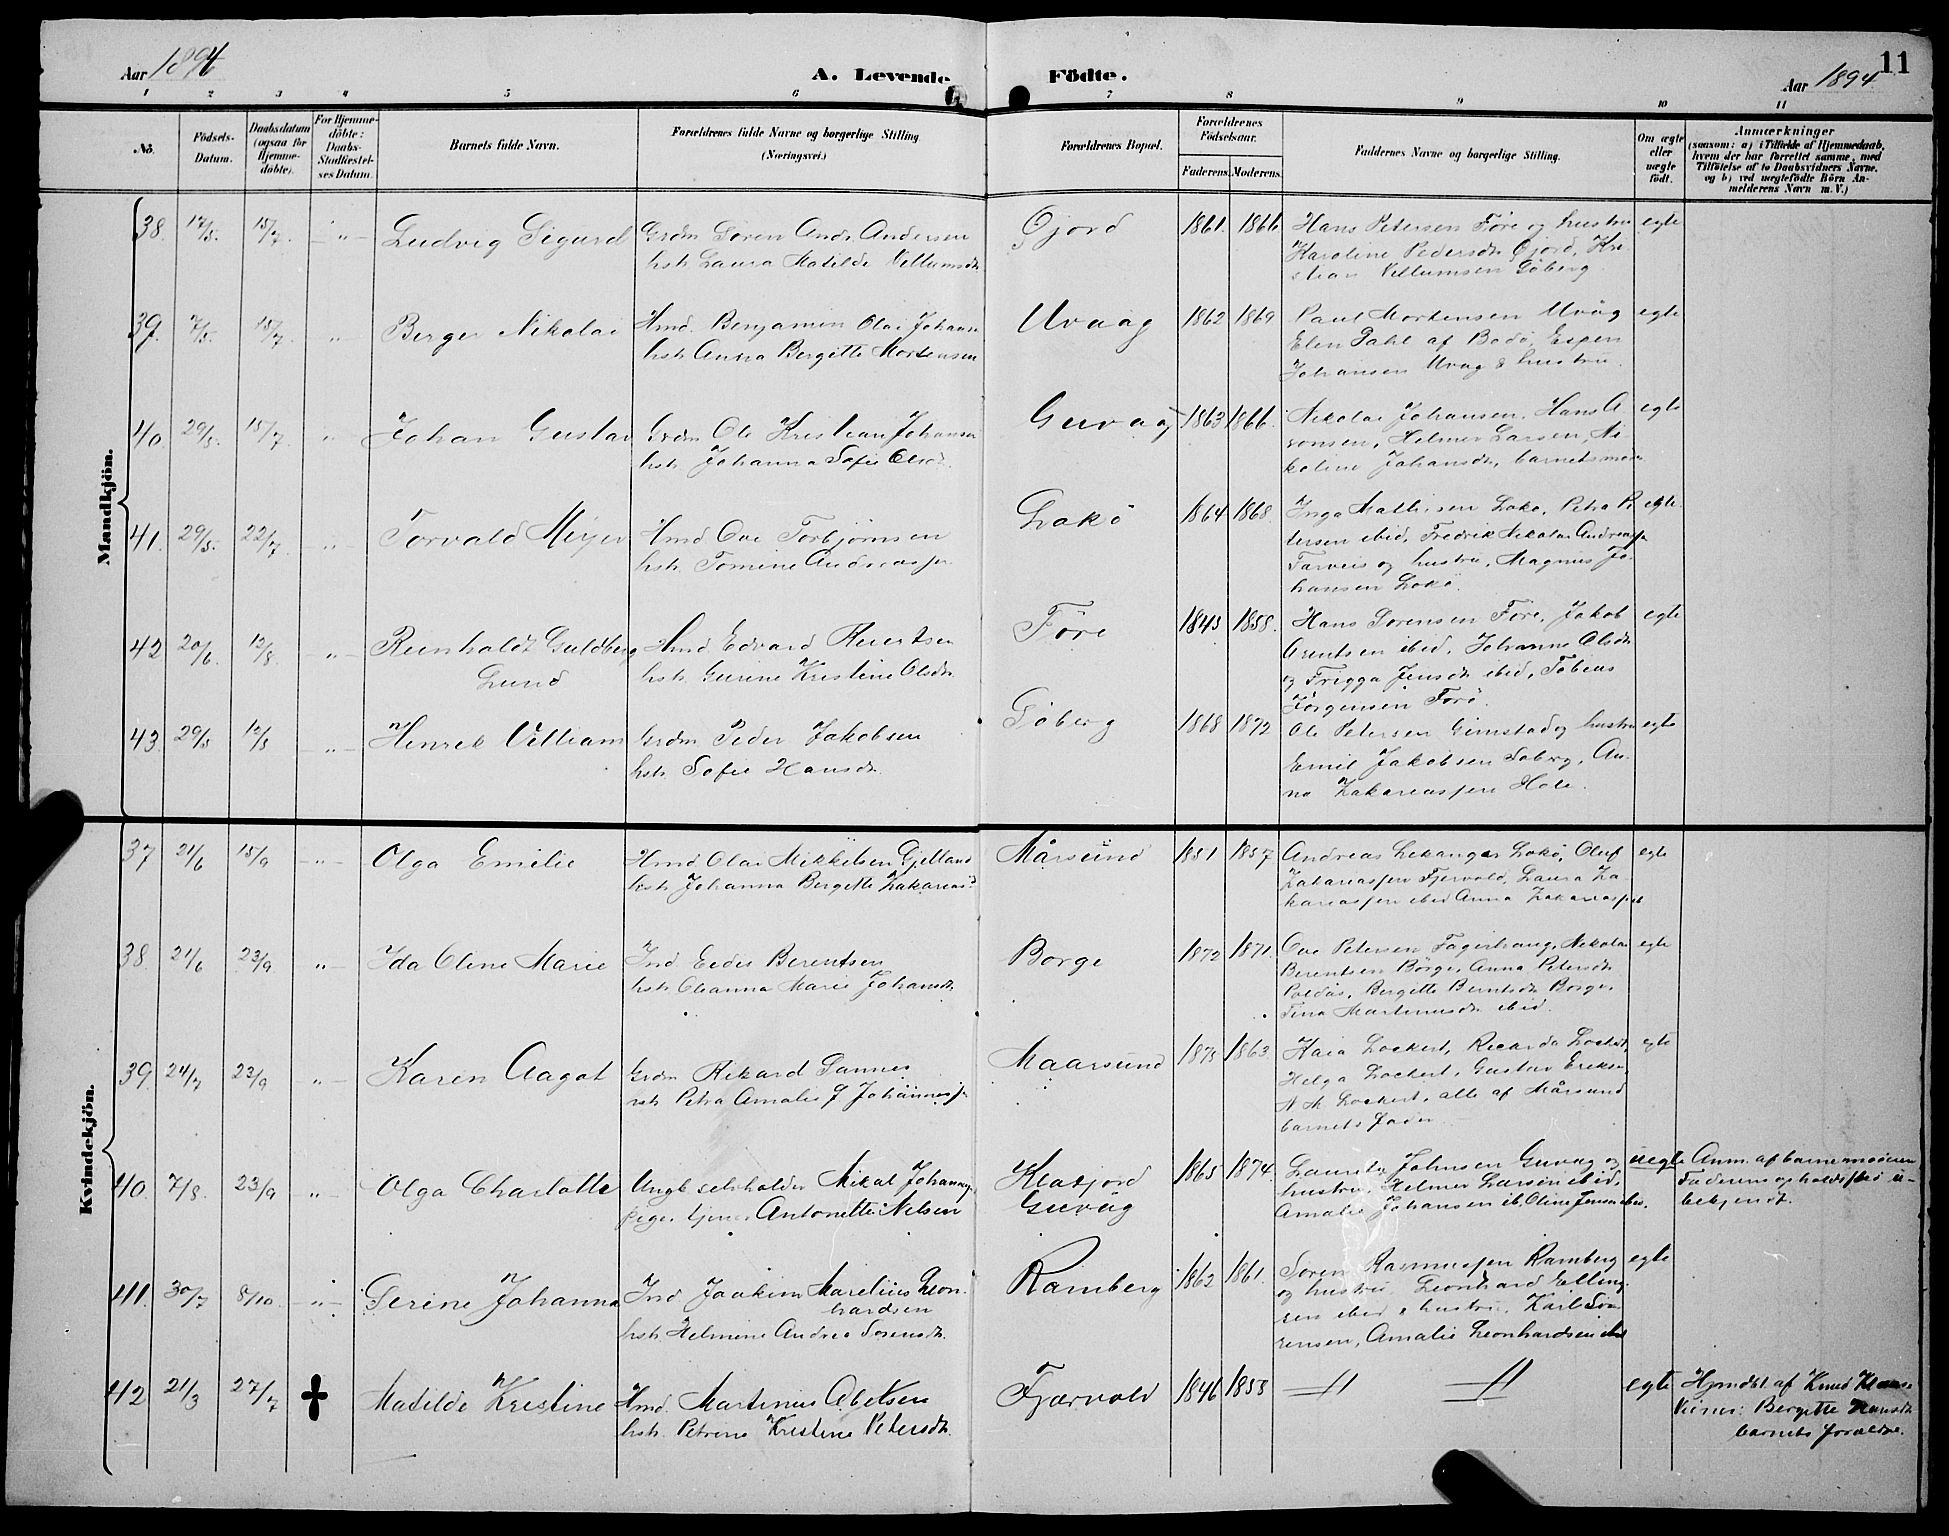 11
Aar 1894
A. Levende Födte.
Aar 1894
1 2 3 4 5 6 7 8 9 10 11
No.
Födsels-
Datum.
Daabsdatum
(ogsaa for
Hjemme-
döbte).
For Hjemme-
döbte:
Daabs-
Stadfæstel-
ses Datum.
Barnets fulde Navn.
Forældrenes fulde Navne og borgerlige Stilling
(Næringsvei.)
Forældrenes Bopæl.
Forældrenes
Födselsaar.
Faderens. Moderens.
Faddernes Navne og borgerlige Stilling.
Om ægte
eller
uægte
født.
Anmærkninger
(saasom: a) i Tilfælde af Hjemmedaab,
hvem der har forrettet samme, med
Tilföielse af to Daabsvidners Navne,
og b) ved uægtefödte Börn An-
melderens Navn m. V.)
Mandkjön.
38. 17/5. 15/7. Ludvig Sigurd
Grdm Søren Andr. Andersen
hstr Laura Matilde Vellumsdtr
Gjord 1861. 1866
Hans Petersen Före og hustru
Karoline Pedersdtr Gjord, Kri-
stian Vellumsen Göberg
egte
39. 7/5. 15/7. Berger Nikolai
Hmd. Benjamin Olai Johans
hstr Anna Bergitte Mortensen
Uvaag 1862 1869
Paul Mortensen Uvåg
Elen Dahl af Bodö, Espen
Johansen Uvåg & hustru
egte
40. 29/5. 15/7. Johan Gustav
Grdm Ole Kristian Johansen
hstr Johanna Sofie Olsdtr.
Guvåg 1863 1866.
Nikolai Johansen, Hans A-
ronsen, Helmer Larsen, Ni-
koline Johansdtr, barnets moder
egte
41. 29/5. 22/7. Torvald Meyer
Hmd Ove Torbjörnsen
hstr. Tomine Andreasen
Lokö 1864 1868.
Inga Mathisen Lokö, Petra Pe-
tersen ibid, Fredrik Nikolai Andreasen
Tarveis og hustru, Magnus Jo-
hansen Lokö.
egte.
42 20/6. 12/8. Reinholdt Guldberg
Lund
Hmd Edvard Reiertsen
hstr. Gurine Kristine Olsdtr.
Före 1845 1858.
Hans Sörensen Före, Jakob
Arentsen ibid, Johanna Olsdtr
og Frigga Jensdtr ibid, Tobias
Jörgensen Forö.
egte
43. 29/5 12/8 Henrik Villiam
Grdm Peder Jakobsen
hstr Sofie Hansdtr.
Göberg 1868 1872
Ole Petersen Gimstad og hustru
Emil Jakobsen Söberg, An-
na Zakariassen Hole.
egte
Kvindekjön.
37 21/6 15/9 Olga Emilie
Hmd Olai Mikkelsen Gjelland
hstr Johanna Bergitte Zakariasd
Mårsund 1851 1857
Andreas Lekanger Lokö, Oluf
Zakariassen Fjervold, Laura Za-
kariassen ibid Anna Zakariassen
egte
38 21/6 23/9 Ida Oline Marie
Ind Eedes Berentsen
hstr. Oleanna Marie Johansdtr
Borge 1872 1871.
Ove Petersen Fagerhaug, Nikolai
Berentsen Börge, Anna Petersdtr
Poldås, Bergitte Berntsdtr Borge,
Tina Martinusdtr ibid.
egte
39. 24/7 23/9 Karen Aagot
Grdm Rikard Sannes
hstr Petra Amalie J Johannesen
Maarsund 1875 1863
Kaia Lockert, Ricarda Lockert,
Helga Lockert, Gustav Eriksen,
N M Lockert, alle af Mårsund
barnets fader
egte
40. 7/8. 23/9 Olga Charlotte
Ungk selvholder Mikal Johannes
pige, tjener Antonette Nilsen
Klatfjord
Guvåg 1865 1874.
Laurits Johnsen Guvåg og
hustru, Helmer Larsen ibid,
Amalie Johansen ib, Oline Jensen ibid.
uegte
Anm. af barnemoderen
Faderens opholdssted u-
bekjendt.
41. 30/7 8/10. Gerine Johanna
Ind Joakim Marelius Leon-
hardsen
hstr. Helmine Andrea Sörensdtr.
Ramberg 1862 1861.
Sören Rasmussen Ramberg
og hustru, Leonhard Elling-
sen ibid & hustru, Karl Sö-
rensen, Amalie Leonhardsen ibid
egte
42 21/3 27/7 ✝ Matilde Kristine
Hmd. Martinus Abelsen
hstr. Petrine Kristine Petersdtr.
Fjærvold 1846 1853
—〃— —〃—
egte
Hjmdbt af Knud Klaus
Vidner: Bergitte Hansdtr
barnets forældre.